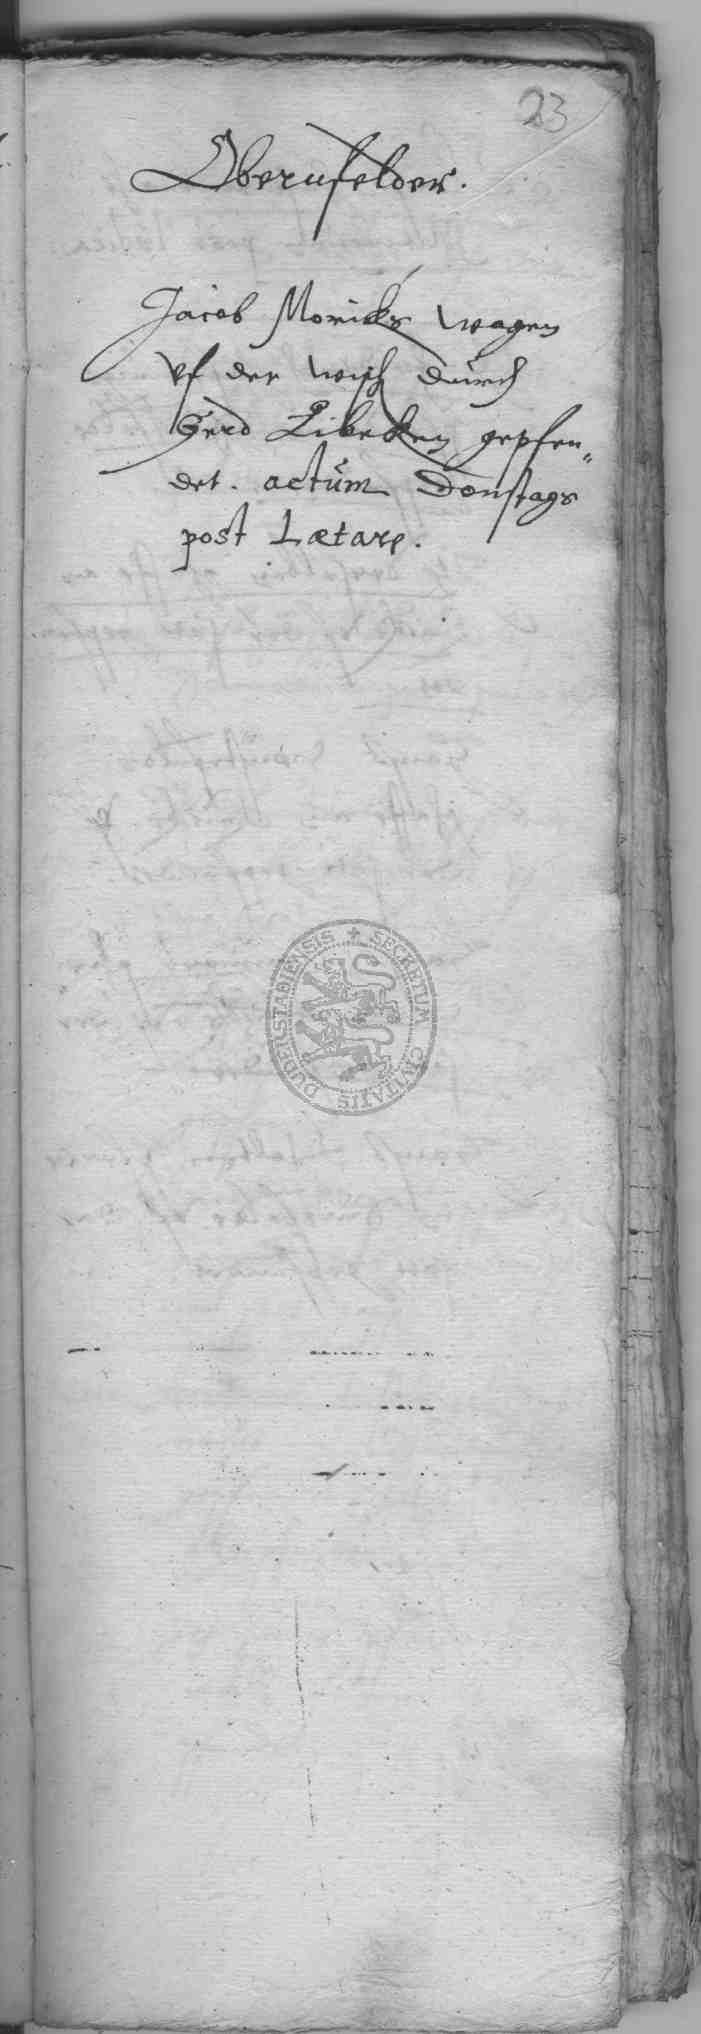 23
Obernfelder.
Jacob Moricks wagen
vf der wisch durch
Gerd Libecken gepfen„
det. actum Donstags
post Lætare.
SECRETUM CIVITATIS DUDERSTADIENSIS